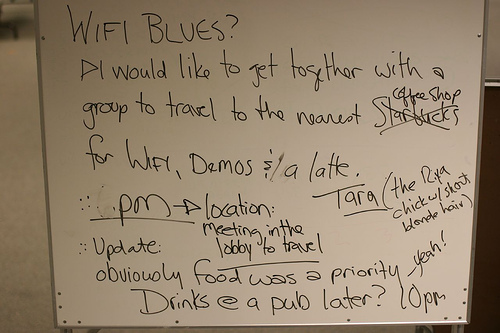 WIFI BLUES?
I would like to get together with a
group to travel to the nearest Starbucks coffee shop
for WiFi, Demos & a latte.
Tara (the Pixa
chick w/ short
blonde hair)
pm → location:
meeting in the
lobby to travel
Update:
obviously food was a priority - yeah!
Drinks @ a pub later? 10pm